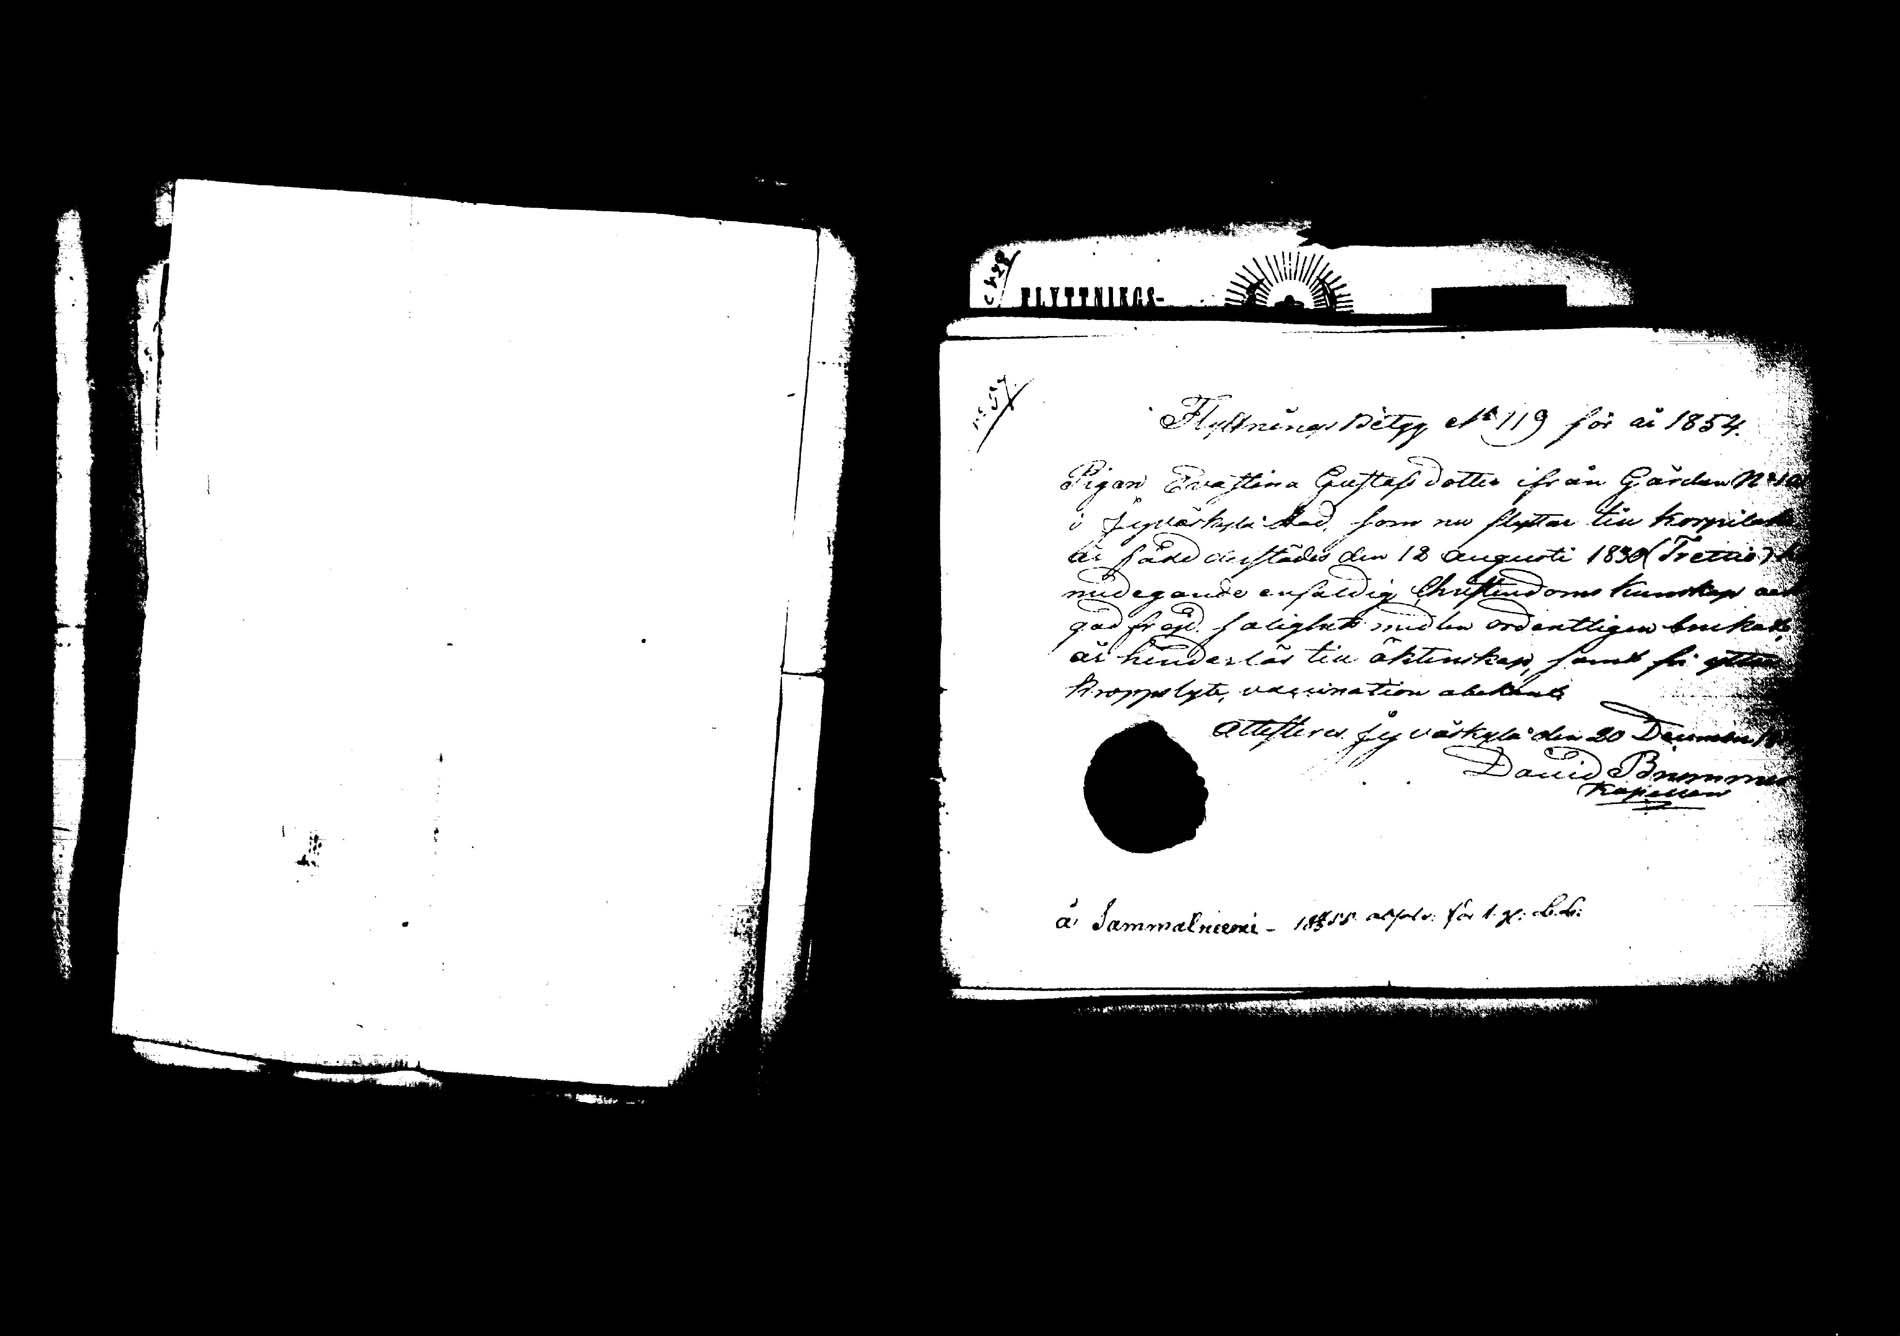 FLYTTNINGS-
No 57
Flyttnings Betyg No 119 för år 1854.
Pigan Eva Stina Gustafsdotter ifrån Gården No
i Jyväskylä stad, som nu flyttar till Korpilax
är född derstädes den 12 Augusti 1830 (Trettio)
med egande enfaldig Christendoms kunskap och
god frejd. salighets medlen ordentligen brukat
är hinderlös till äktenskap, samt fri yttre
kroppslyte, vaccination obekant
Attesteras Jyväskylä den 20 December
David Brummer
Kapellan
å Sammalniemi - 1855 för